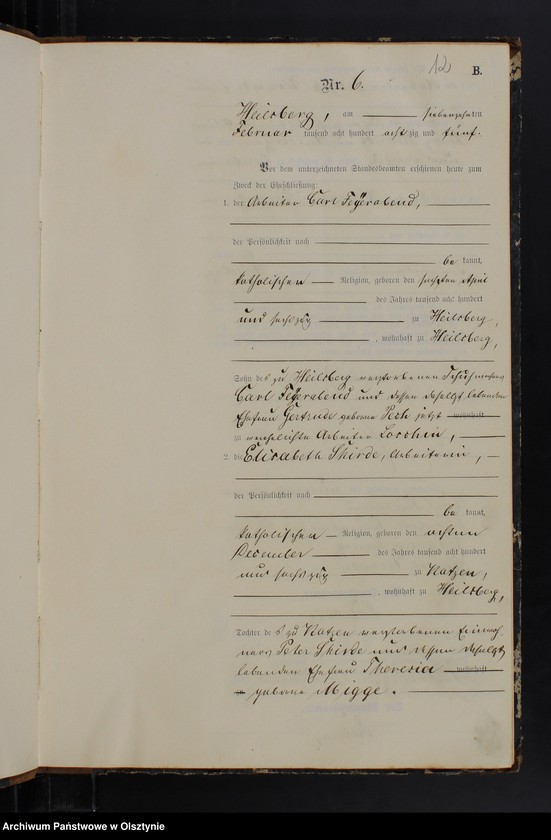 12 B.
Nr. 6.
Heilsberg, am siebenzehnten
Februar tausend acht hundert achtzig und fünf.
Vor dem unterzeichneten Standesbeamten erschienen heute zum
Zweck der Eheschließung:
1. der Arbeiter Carl Feyerabend,
der Persönlichkeit nach
be kannt,
katholischer Religion, geboren den sechsten April
des Jahres tausend acht hundert
und sechszig zu Heilsberg,
, wohnhaft zu Heilsberg,
Sohn des zu Heilsberg verstorbenen Schuhmachers
Carl Feyerabend und dessen daselbst lebenden
Ehefrau Gertrude geborne Pech jetzt wohnhaft
zu verehelichte Arbeiter
2. die Elisabeth Skirde, Arbeiterin,
der Persönlichkeit nach
be kannt,
katholischer Religion, geboren den achten
December des Jahres tausend acht hundert
und sechszig zu Katzen,
, wohnhaft zu Heilsberg,
Tochter des zu Katzen verstorbenen Einwoh-
ners Peter Skirde und dessen daselbst
lebenden Ehefrau Theresia wohnhaft
geborne Migge.
Archiwum Państwowe w Olsztynie